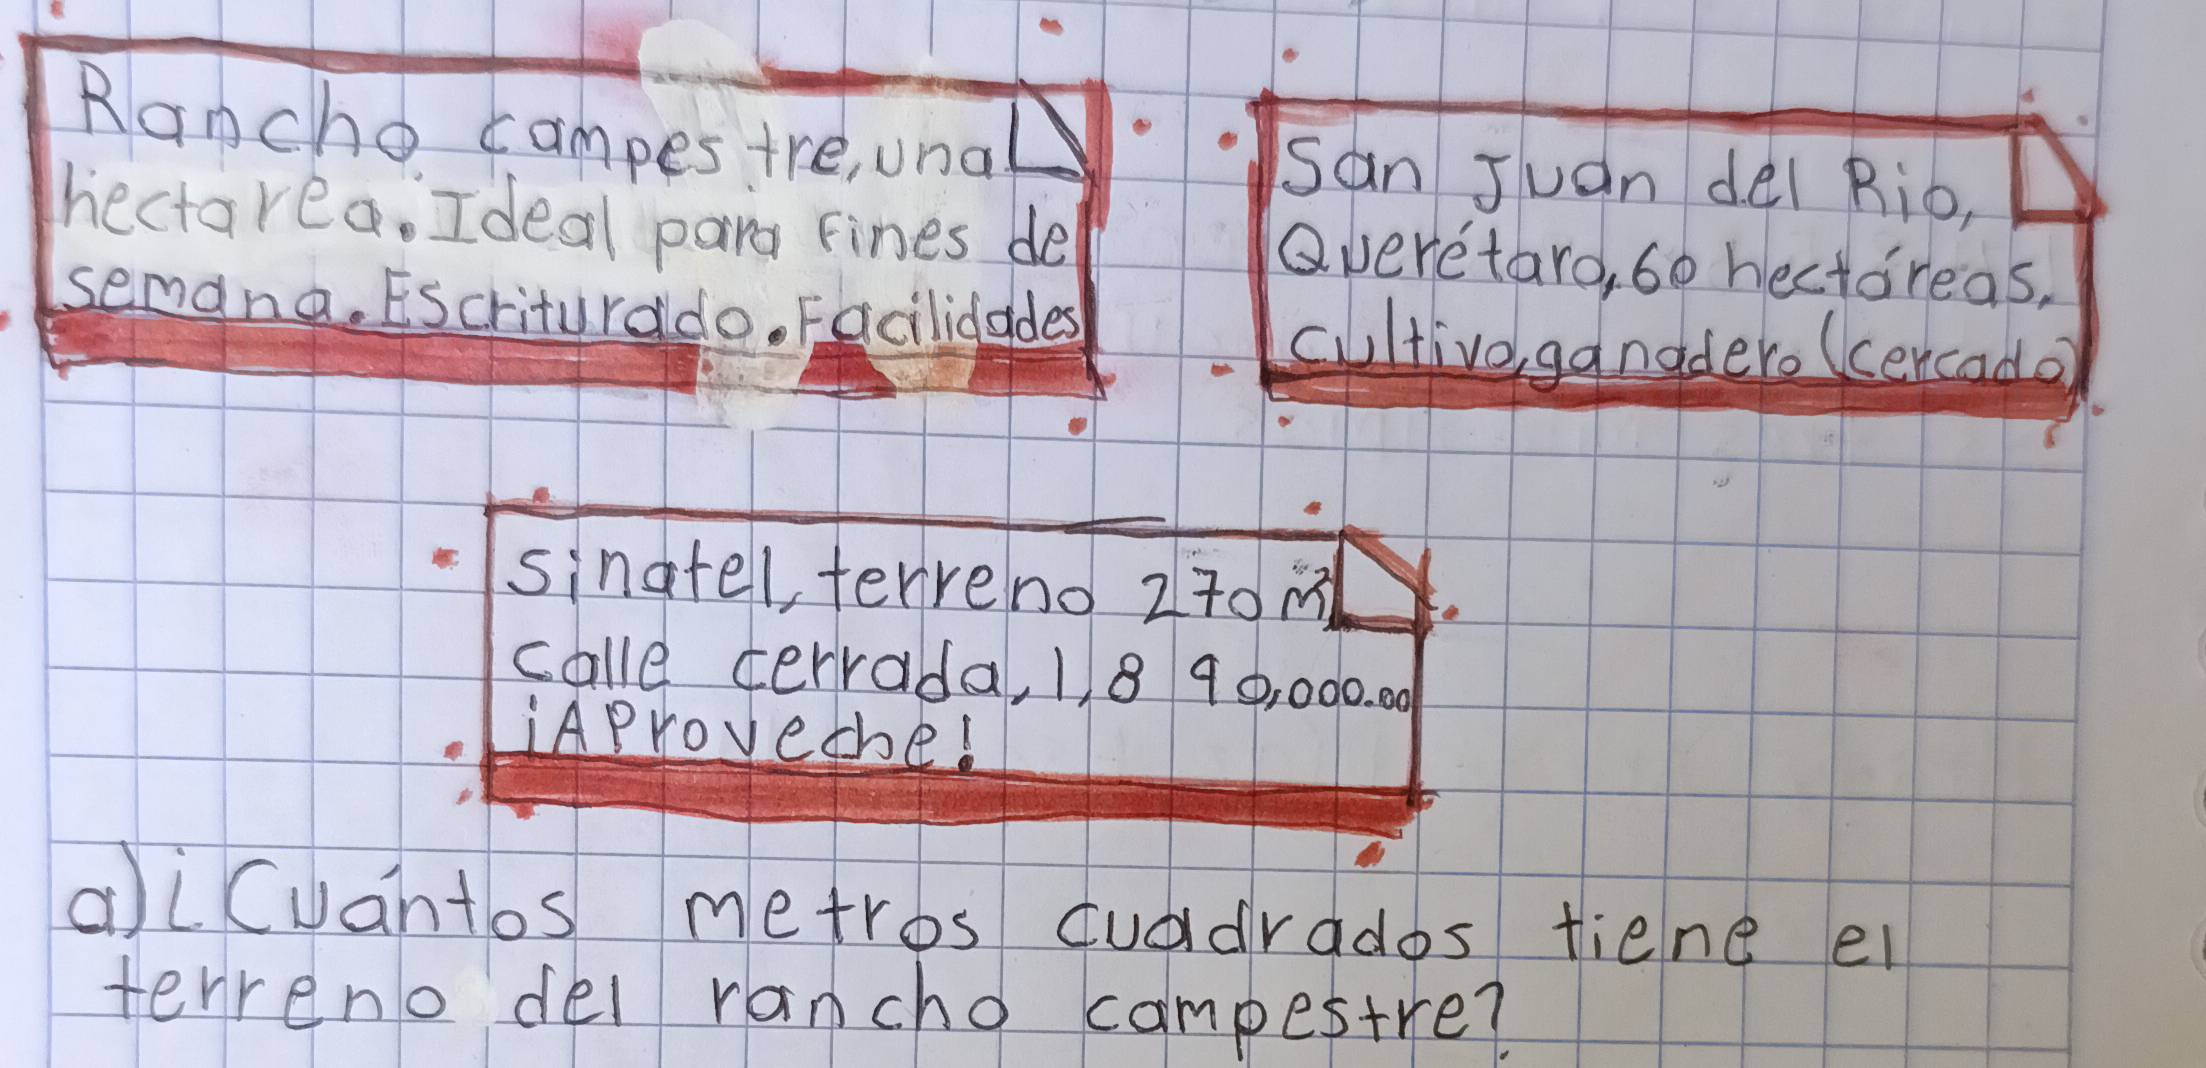 Rancho campestre, una
hectarea. Ideal para fines de
semana. Escriturado. Facilidades
San Juan del Rio,
Querétaro, 60 hectáreas.
cultivo, ganadero (cercado)
sinatel, terreno 270 m²
calle cerrada, 1,890,000.00
¡Aproveche!
a) ¿Cuántos metros cuadrados tiene el
terreno del rancho campestre?